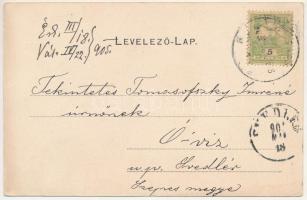 Érk. III/18.
Vál. IV/22. 905.
LEVELEZŐ-LAP.
5
Tekintetes Tomasofszky Imréné
úrnőnek
Ó-viz
u.p. Svedlér
Szepes megye
18